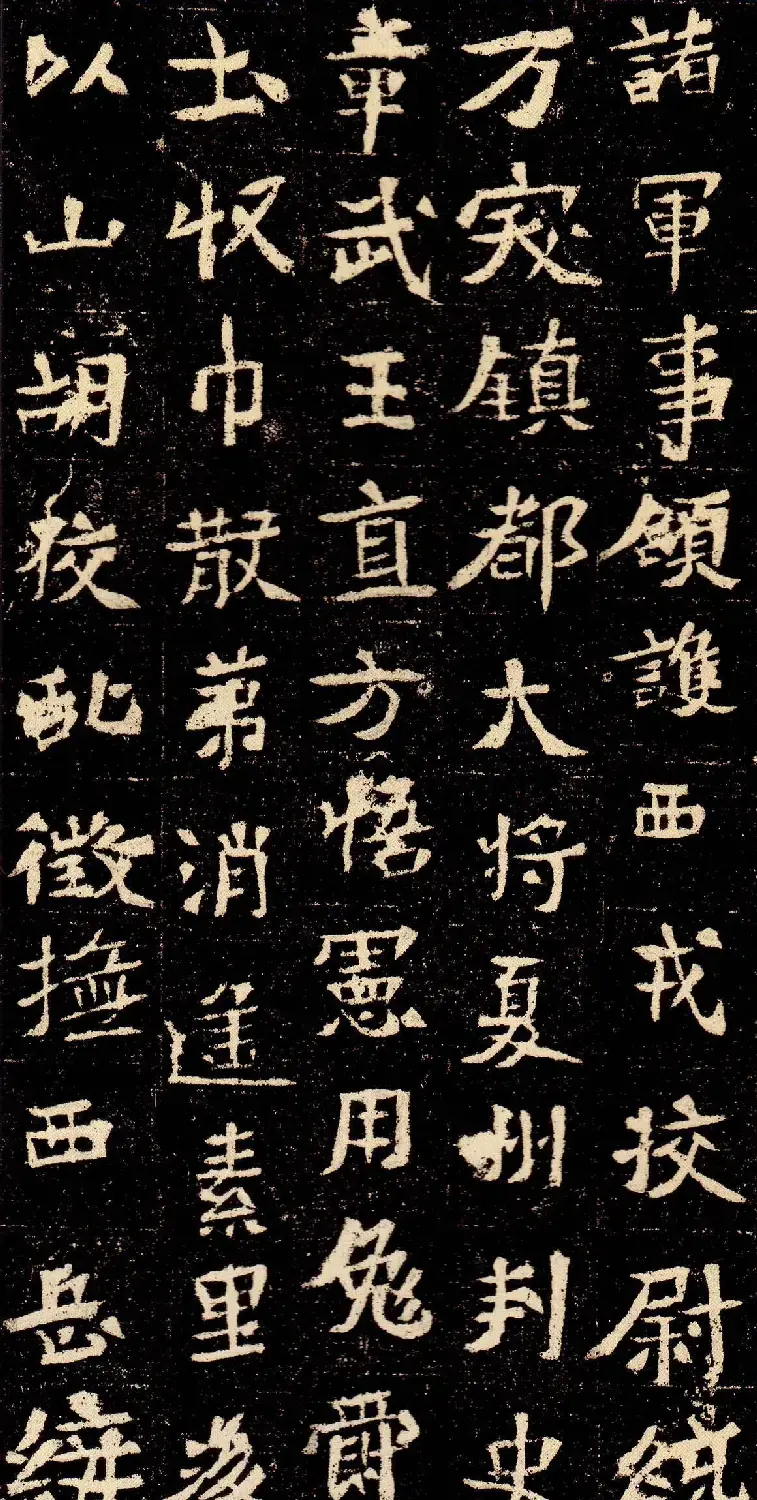 諸軍事領護西戎校尉統
万突鎮都大将夏州刺史
章武王直方悟憲用免爵
土收巾散第消遥素里後
以山胡狡乱徵撫西岳绛